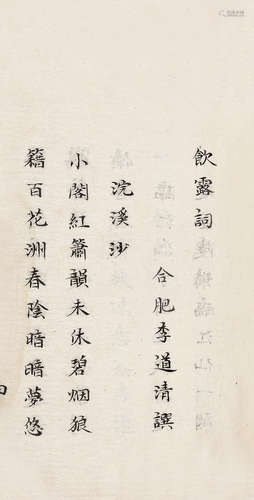 飲露詞
合肥李道清譔
浣溪沙
小閣紅簫韻未休碧烟狼
籍百花洲春陰暗暗夢悠